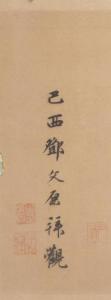 己酉鄧文原拜觀